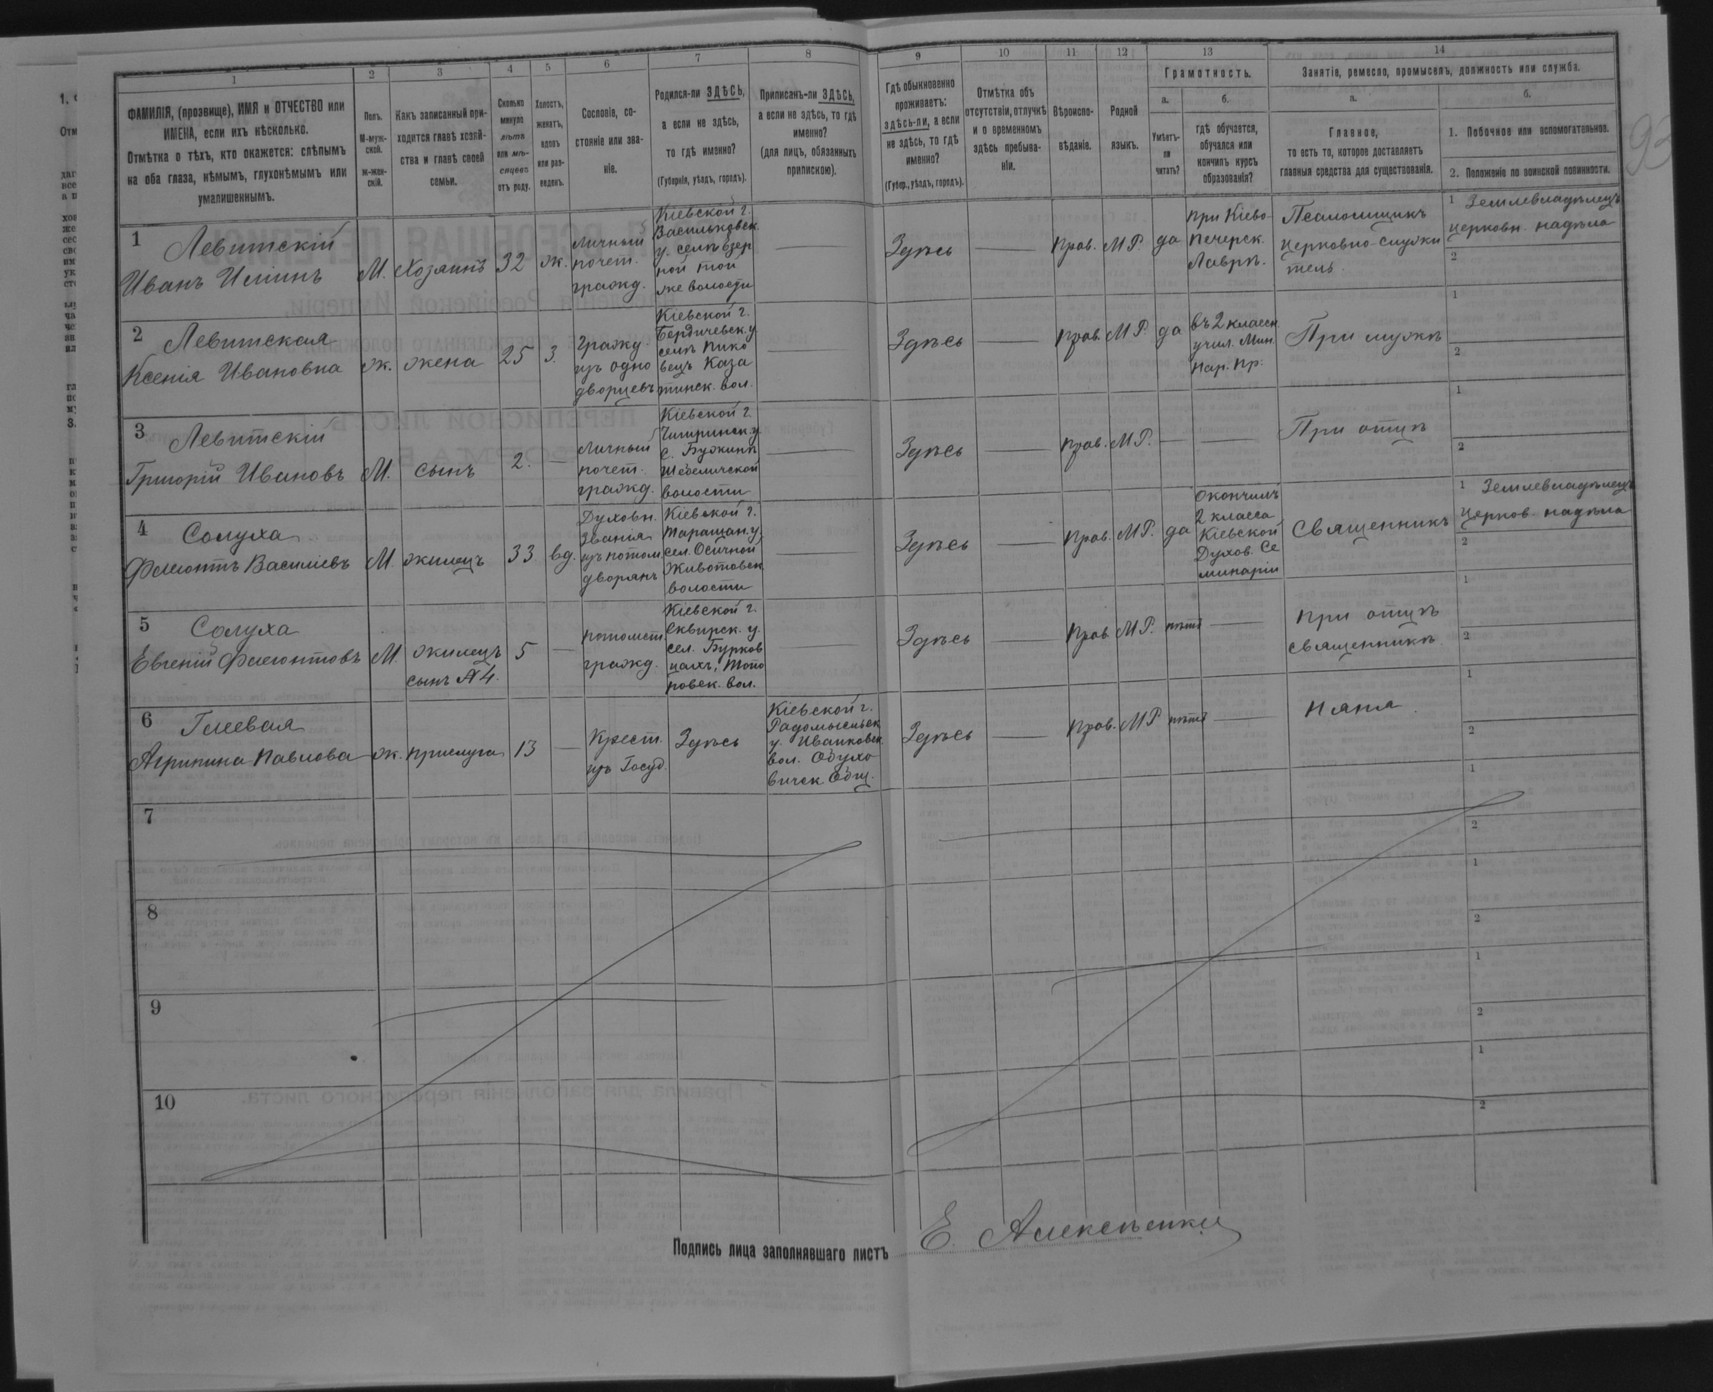 93
1
2
3
4
5
6
7
8
9
10
11
12
13
14
ФАМИЛІЯ, (прозвище), ИМЯ и ОТЧЕСТВО или
ИМЕНА, если ихъ нѣсколько.
Отмѣтка о тѣхъ, кто окажется: слѣпымъ
на оба глаза, нѣмымъ, глухонѣмымъ или
умалишеннымъ.
Полъ.
М-муж-
ской.
ж-жен-
скій.
Какъ записанный при-
ходится главѣ хозяй-
ства и главѣ своей
семьи.
Сколько
минуло
лѣтъ
или мѣ-
сяцевъ
отъ роду.
Холостъ,
женатъ,
вдовъ
или раз-
веденъ.
Сословіе, со-
стояніе или зва-
ніе.
Родился-ли ЗДѢСЬ,
а если не здѣсь,
то гдѣ именно?
(Губернія, уѣздъ, городъ).
Приписанъ-ли ЗДѢСЬ,
а если не здѣсь, то гдѣ
именно?
(для лицъ, обязанныхъ
припискою).
Гдѣ обыкновенно
проживаетъ:
здѣсь-ли, а если
не здѣсь, то гдѣ
именно?
(Губер., уѣздъ, городъ).
Отмѣтка объ
отсутствіи, отлучкѣ
и о временномъ
здѣсь пребыва-
ніи.
Вѣроиспо-
вѣданіе.
Родной
языкъ.
Грамотность.
а.
Умѣетъ-
ли
читать?
б.
гдѣ обучается,
обучался или
кончилъ курсъ
образованія?
Занятіе, ремесло, промыселъ, должность или служба.
а.
Главное,
то есть то, которое доставляетъ
главныя средства для существованія.
б.
1. Побочное или вспомогательное.
2. Положеніе по воинской повинности.
1
Левитскій
Иванъ Ильинъ
М.
Хозяинъ
32
ж.
Личный
почет.
гражд.
Кіевской г.
Васильковск.
у. селѣ Озер
ной той
же волости
Здѣсь
Прав.
М.Р.
да
При Кіево-
Печерск.
Лаврѣ.
Псаломщикъ
церковно-служи
тель.
1 Землевладѣлецъ
церковн. надѣла
2
2
Левитская
Ксенія Ивановна
ж.
жена
25
з.
Гражд
изъ одно
дворцевъ
Кіевской г.
Бердичевск. у
селѣ Пико
вецъ Каза
тинск. вол.
Здѣсь
Прав.
М.Р.
да
въ 2 классн.
учил. Мин.
Нар. Пр.
При мужѣ
1
2
3
Левитскій
Григорій Ивановъ
М.
сынъ
2.
Личный
почет.
гражд.
Кіевской г.
Чигиринск. у
волости
Здѣсь
Прав.
М.Р.
При отцѣ
1
2
4
Солуха
Филионтъ Василіевъ
М.
жилецъ
33
вд.
Духовн.
званія
изъ потом
дворянъ
Кіевской г.
Таращан. у
сел. Осичной
Животовск
волости
Здѣсь
Прав.
М.Р.
да
Окончилъ
2 класса
Кіевской
Духов. Се
минаріи
Священникъ
1 Землевладѣлецъ
церков. надѣла
2
5
Солуха
Евгеній Филионтовъ
М.
жилецъ
сынъ №4.
5
потомст
гражд.
Кіевской г.
Сквирск. у.
сел. Бурков
цахъ, Топо
ровск. вол.
Здѣсь
Прав.
М.Р.
нѣтъ
При отцѣ
священникѣ
1
2
6
Гилевая
Агрипина Павлова
ж.
прислуга
13
Крест.
изъ Госуд.
Здѣсь
Кіевской г.
Радомысльск
у. Иванковск
вол. Обухо
вичск. Общ.
Здѣсь
Прав.
М.Р.
нѣтъ
Няня
1
2
7
1
2
8
1
2
9
1
2
10
1
2
Подпись лица заполнявшаго листъ
Е. Алексѣенко